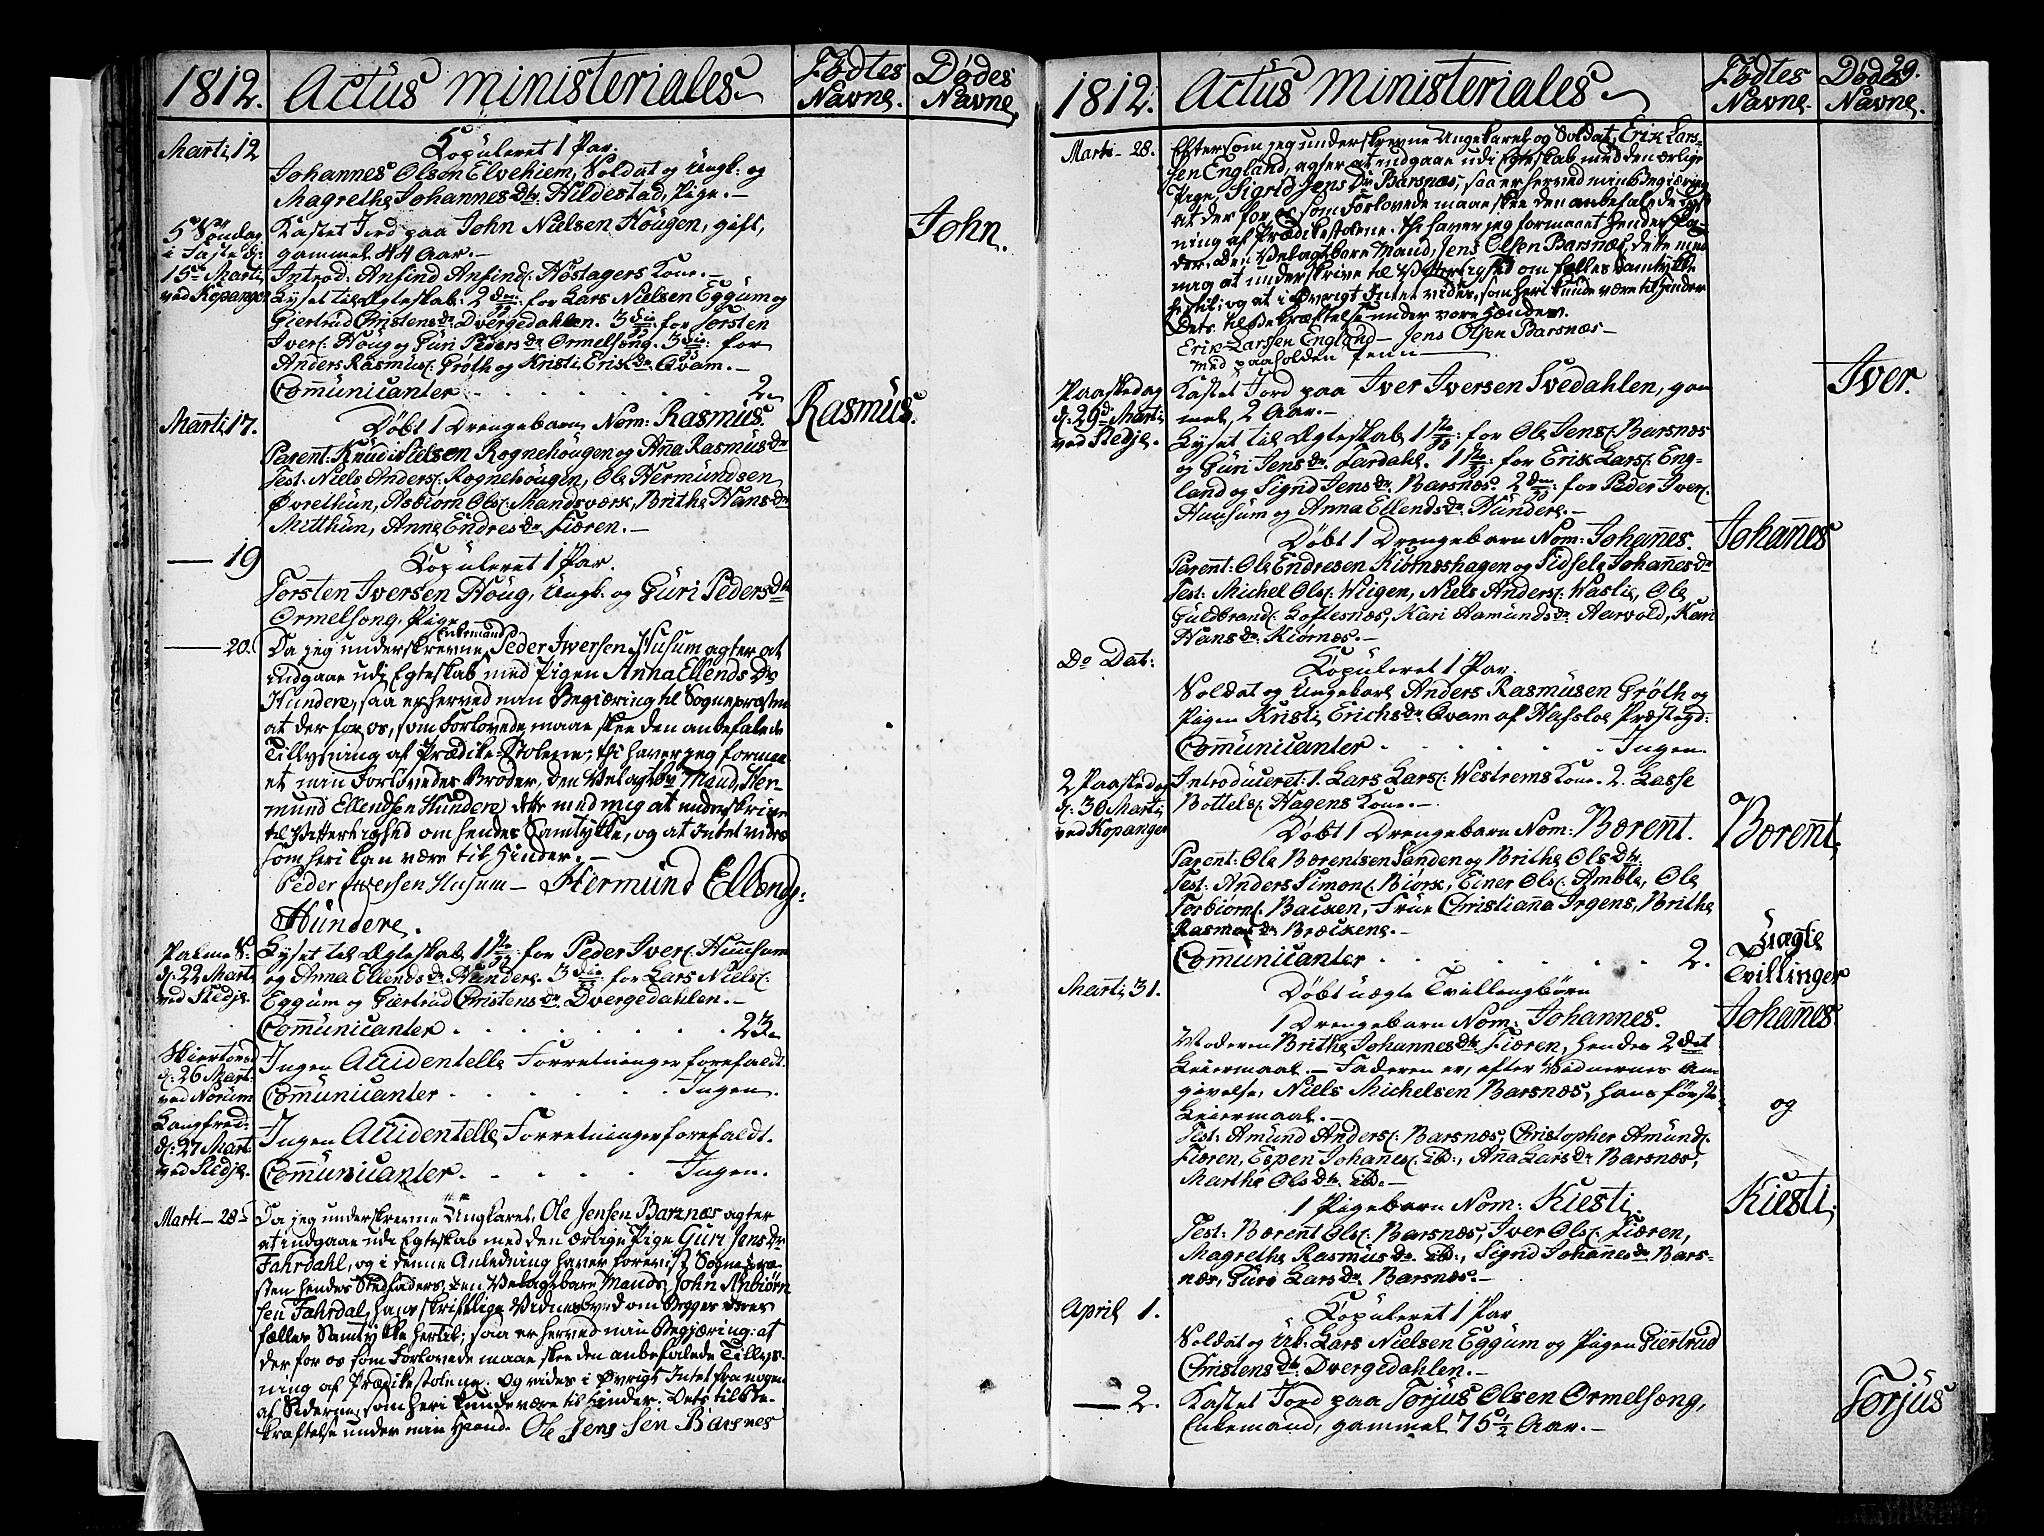 1812. Actus ministeriales Fødtes Navne. Dødes Navne.
Marti, 12 Copuleret 1 Par.
Johannes Olsøn Elvehiem, Soldat og Ungk: og
Magrethe Johannes Dtr. Hildestad, Pige.—
5te Søndag Kastet Jord paa John Nielsen Hougen, gift, John.
i Faste d: gammel 44 Aar.—
15de Marti Introd. Anfind Anfinds: Høstagers Kone.—
ved Kopanger Lyset til Ægteskab: 2den: for Lars Nielsen Eggum og
Giertrud Christens dr. Dvergedahlen. 3die: for Torsten
Ivers: Houg og Guri Peders dr. Ormelsong. 3die: for
Anders Rasmus: Grøth og Kristi Erik dr. Qvam.—
Communicanter . . . . . 2.
Marti, 17. Døbt 1 Drengebarn, Nom: Rasmus. Rasmus.
Parent: Knud Nielsen Rognehougen og Ana Rasmus dr
Test: Niels Anders: Rognehougen, Ole Hermundsen
Øvrethun, Asbiørn Ols: Mandsværk, Brithe Hans dr.
Mitthun, Anne Endres dr. Fiæren.—
— 19 Copuleret 1 Par.
Torsten Iversen Houg, Ungk: og Guri Peders dtr
Ormelsong, Pige
— 20. Da jeg underskrevne Enkemand Peder Iwersen Husum agter at
indgaae udi Egteskab med Pigen Anna Ellends Dr
Hundere, saa er herved min Begiæring til Sogneprosten
at der for os, som Forlovede, maae skee den anbefalede
Tillysning af Prædike-Stolene, thi haver jeg forma-
et min Forlovedes Broder, den Velagtb: Mand, Her-
mund Ellendsen Hundere, dette med mig at underskrive
til Vitterlighed om hendes Samtykke, og at Intet vides
som heri kan være til Hinder.—
Peder Iwersen Husum — Hermund Ellends:
Hundere.
Palme S: Lyset til Ægteskab 1ste: for Peder Ivers: Huusum
d: 22 Mart: og Anna Ellends dr. Hundere. 3die: for Lars Niels:
ved Stedje. Eggum og Giertrud Christens dr. Dvergedahlen.—
Communicanter . . . . . 23.
Skiertors Ingen Accidentelle Forretninger forefaldt.
d: 26 Mart:
ved Norum Communicanter . . . . . Ingen.
Langfred: Ingen Accidentelle Forretninger forefaldt.
d: 27 Mart:
ved Stedje. Communicanter . . . . Ingen.
Marti — 28 — Da jeg underskrevne Ungkarel, Ole Jensen Barsnæs agter
at indgaae udi Egteskab med den ærlige Pige Guri Jens Dr
Fahrdahl, og i denne Anledning haver forevist Sognepro-
sten hendes Stedfaders, den Velagtbare Mands, John Anbiørn
sen Fahrdal, hans skriftlige Vidnesbyrd om Begges deres
fælles Samtykke hertil; saa er herved min Begjæring: at
der for os som Forlovede maae skee den anbefalede Tillys-
ning af Prædikestolene. Og vides i Øvrigt Intet fra nogen
af Siderne, som heri kunde være til Hinder. Dets til Be-
kræftelse under min Haand. Ole Jens Sen Barsnes
1812. Actus ministeriales Fødtes Navne. Dødes Navne. 29.
Marti — 28. Eftersom jeg underskrevne Ungekarel og Soldat, Erik Lars-
sen England, agter at indgaae udi Egteskab med den ærlige
Pige, Sigrid Jens Dr Barsnæs, saa er herved min Begiæring
at der for os som Forlovede maae skee den anbefalede Lys-
ning af Prædikestolene. Thi haver jeg formaaet hendes Fa-
der, den Velagtbare Mand, Jens Olsen Barsnæs, dette med
mig at underskrive til Vitterlighed om fælles Samtykke
hertil; og at i Øvrigt Intet vides, som heri kunde være til Hinder
Dets til Bekræftelse under vore Hænder.
Erik Larssen England — Jens Olsen Barsnæs —
med paaholden Penn —
Paaskedag Kastet Jord paa Iver Iversen Svedahlen, gam- Iver.
d: 29d. Marti mel, 2 Aar.—
ved Stedje. Lyset til Ægteskab 1ste: for Ole Jens: Barsnæs
og Guri Jens dr. Fardahl. 1ste: for Erik Lars: Eng-
land og Sigrid Jens dr. Barsnæs. 2den: for Peder Iver:
Huusum og Anna Ellends dr. Hundere.—
Døbt 1 Drengebarn Nom: Johannes. Johannes
Parent: Ole Endresen Kiørneshagen og Sidsele Johannes dr
Test: Michel Ols: Wiigen, Niels Anders: Waslie, Ole
Guldbrands: Loftesnæs, Kari Aamunds dr. Aarvold, Kari
Hans dr. Kiørnæs.—
Do Dat: Copuleret 1 Par.
Soldat og Ungekarl Anders Rasmusen Grøth og
Pigen Kristi Erichs dr. Qvam af Hafsloe Præstegd:
Communicanter . . . . . Ingen.
2 Paaskedag Introduceret: 1. Lars Lars: Westrems Kone. 2. Lasse
d: 30 Marti Bottels: Hagens Kone.—
ved Kopanger Døbt 1 Drengebarn Nom: Børent. Børent,
Parent: Ole Børentsen Sanden og Brithe Ols Dtr.
Test: Anders Simons: Biørk, Einer Ols: Amble, Ole
Torbiørns: Backen, Frue Christianna Irgens, Brithe
Rasmus dr. Bræckene.—
Communicanter . . . . . . 2.
Marti 31. Døbt uægte Tvillingbørn Uægte Tvillinger
1 Drengebarn Nom: Johannes. Johannes
Moderen Brithe Johannes dtr. Fiæren, hendes 2det
Leiermaal.— Faderen er, efter Vidnernes An-
givelse, Niels Michelsen Barsnæs, hans første
Leiermaal.— og
Test: Amund Anders: Barsnæs, Christopher Amund:
Fiæren, Espen Johanes: ibd:, Anna Lars dr. Barsnæs,
Marthe Ols dtr. ibd.—
1 Pigebarn Nom: Kiesti. Kiesti,
Test: Børent Ols: Barsnæs, Iver Ols: Fiæren,
Magrethe Rasmus dr. ibd:, Sigrid Johannes dr. Bars-
næs, Guro Lars dr. Barsnæs.—
April 1. Copuleret 1 Par
Soldat og Uk: Lars Nielsen Eggum og Pigen Giertrud
Christens dr. Dvergedahlen.—
— 2. Kastet Jord paa Torjus Olsen Ormelsong, Torjus
Enkemand, gammel 75 1/2 Aar.—